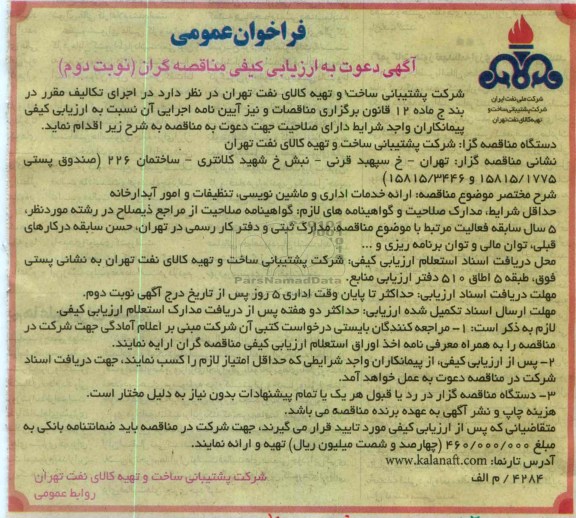 فراخوان عمومی
آگهی دعوت به ارزیابی کیفی مناقصه گران (نوبت دوم)
شرکت ملی نفت ایران
شرکت پشتیبانی ساخت و
تهیه کالای نفت تهران
شرکت پشتیبانی ساخت و تهیه کالای نفت تهران در نظر دارد در اجرای تکالیف مقرر در
بند ج ماده ۱۲ قانون برگزاری مناقصات و نیز آیین نامه اجرایی آن نسبت به ارزیابی کیفی
پیمانکاران واجد شرایط دارای صلاحیت جهت دعوت به مناقصه به شرح زیر اقدام نماید.
دستگاه مناقصه گزار: شرکت پشتیبانی ساخت و تهیه کالای نفت تهران
نشانی مناقصه گزار: تهران - خ سپهبد قرنی - نبش خ شهید کلانتری - ساختمان ۲۲۶ (صندوق پستی
۱۵۸۱۵/۱۷۷۵ و ۱۵۸۱۵/۳۴۴۶)
شرح مختصر موضوع مناقصه: ارائه خدمات اداری و ماشین نویسی، تنظیفات و امور آبدارخانه
حداقل شرایط، مدارک صلاحیت و گواهینامه های لازم: گواهینامه صلاحیت از مراجع ذیصلاح در رشته موردنظر،
۵ سال سابقه فعالیت مرتبط با موضوع مناقصه، مدارک ثبتی و دفتر کار رسمی در تهران، حسن سابقه درکارهای
قبلی، توان مالی و توان برنامه ریزی و ...
محل دریافت اسناد استعلام ارزیابی کیفی: شرکت پشتیبانی ساخت و تهیه کالای نفت تهران به نشانی پستی
فوق، طبقه ۵ اطاق ۵۱۰ دفتر ارزیابی منابع.
ParsNamadData
مهلت دریافت اسناد ارزیابی: حداکثر تا پایان وقت اداری ۵ روز پس از تاریخ درج آگهی نوبت دوم.
مهلت ارسال اسناد تکمیل شده ارزیابی: حداکثر دو هفته پس از دریافت مدارک استعلام ارزیابی کیفی.
لازم به ذکر است: ۱- مراجعه کنندگان بایستی درخواست کتبی آن شرکت مبنی بر اعلام آمادگی جهت شرکت در
مناقصه را به همراه معرفی نامه اخذ اوراق استعلام ارزیابی کیفی مناقصه گران ارایه نمایند.
۲- پس از ارزیابی کیفی، از پیمانکاران واجد شرایطی که حداقل امتیاز لازم را کسب نمایند، جهت دریافت اسناد
شرکت در مناقصه دعوت به عمل خواهد آمد.
۳- دستگاه مناقصه گزار در رد یا قبول هر یک یا تمام پیشنهادات بدون نیاز به دلیل مختار است.
هزینه چاپ و نشر آگهی به عهده برنده مناقصه می باشد.
متقاضیانی که پس از ارزیابی کیفی مورد تایید قرار می گیرند، جهت شرکت در مناقصه باید ضمانتنامه بانکی به
مبلغ ۴۶۰/۰۰۰/۰۰۰ (چهارصد و شصت میلیون ریال) تهیه و ارائه نمایند.
آدرس تارنما: www.kalanaft.com
۴۲۸۴ / م الف
شرکت پشتیبانی ساخت و تهیه کالای نفت تهران
روابط عمومی